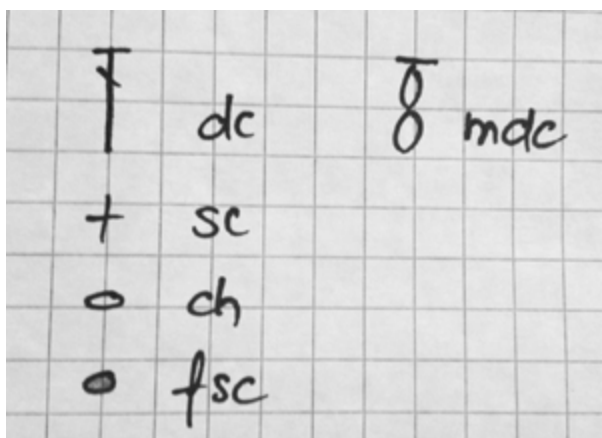 dc mdc
sc
ch
fsc